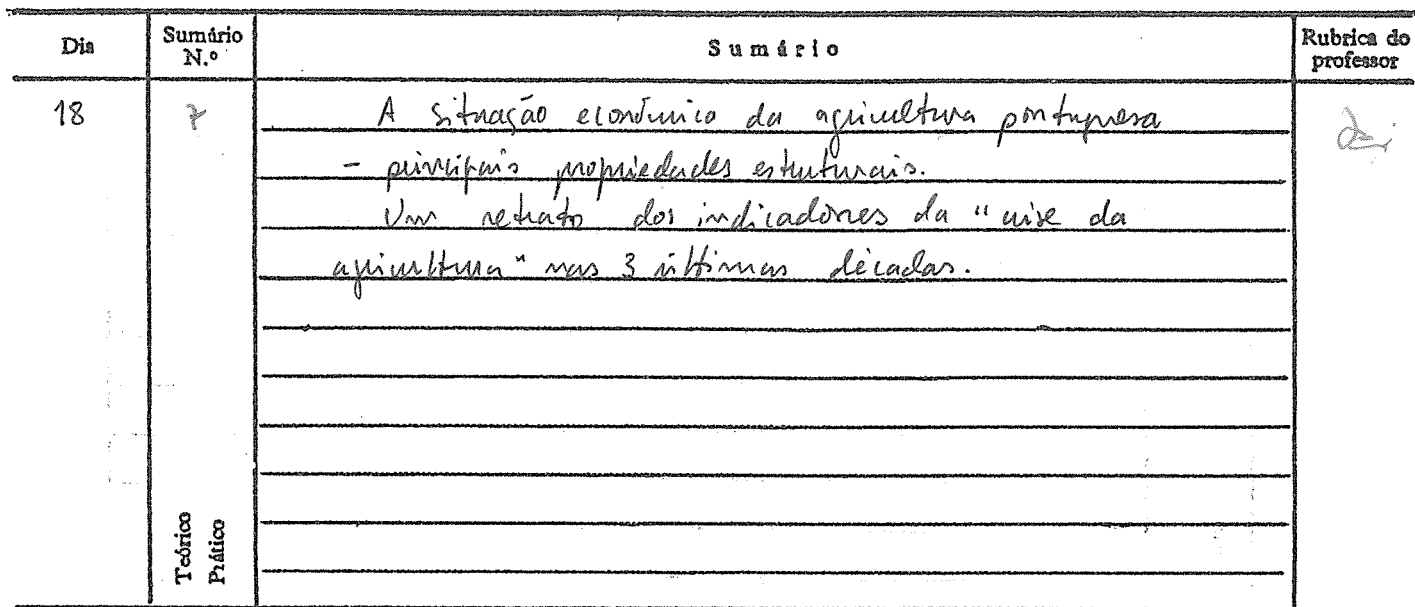 Dia
Sumário N.º
Sumário
Rubrica do professor
18
7
A situação económica da agricultura portuguesa
- principais propriedades estruturais.
Um retrato dos indicadores da "crise da
agricultura" nas 3 últimas décadas.
Teórico
Prático